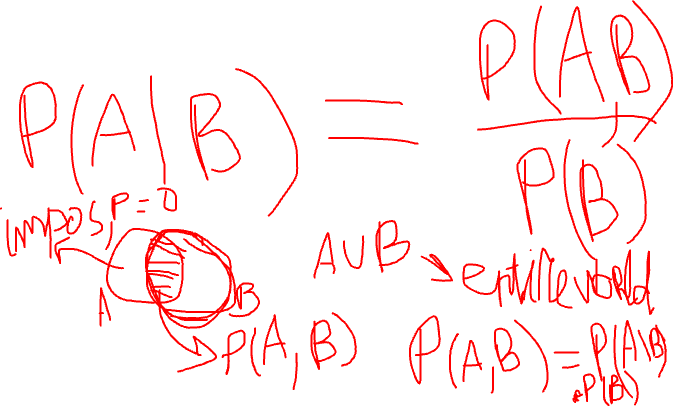 P(A|B) = P(A,B)
P(B)
impos, P = 0
A
B
P(A,B)
A∪B
entire world
P(A,B) = P(A|B)
*P(B)